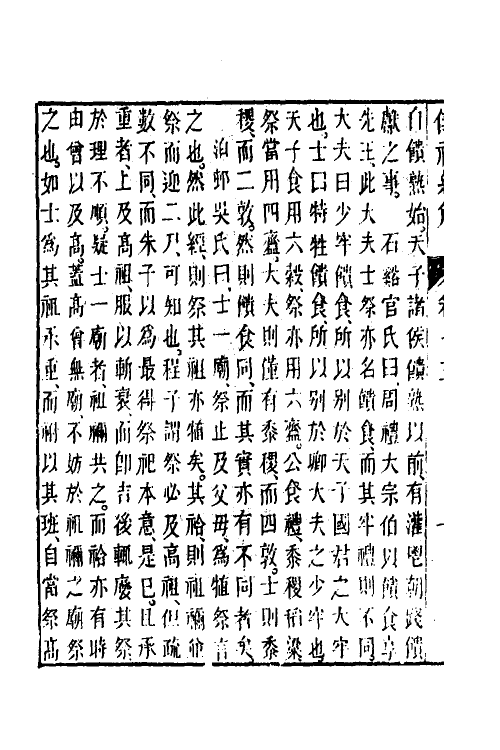 自饋熟始。天子諸侯饋熟以前、有灌鬯朝踐饋
獻之事。　石谿官氏曰、周禮大宗伯以饋食享
先王、此大夫士祭亦名饋食、而其牢禮則不同、
大夫曰少牢饋食、所以別於天子國君之大牢
也、士曰特牲饋食、所以别於卿大夫之少牢也、
天子食用六穀、祭亦用六齍。公食禮、黍稷稻粱
祭當用四齍。大夫則僅有黍稷、而四敦。士則黍
稷、而二敦。然則饋食同、而其實亦有不同者矣。
泊邨吳氏曰、士一廟、祭止及父母、為犆祭言
之也。然此經、則祭其祖亦犆矣。其祫、則祖禰竝
祭而迎二尸、可知也。程子謂祭必及高祖、但疏
數不同、而朱子以為最得祭祀本意、是已。且承
重者、上及高祖、服以斬衰、而卽吉後輒廢其祭、
於理不順。疑士一廟者、祖禰共之。而祫亦有時
由曾以及高。蓋高曾無廟、不妨於祖禰之廟祭
之也。如士為其祖承重、而祔以其班、自當祭高